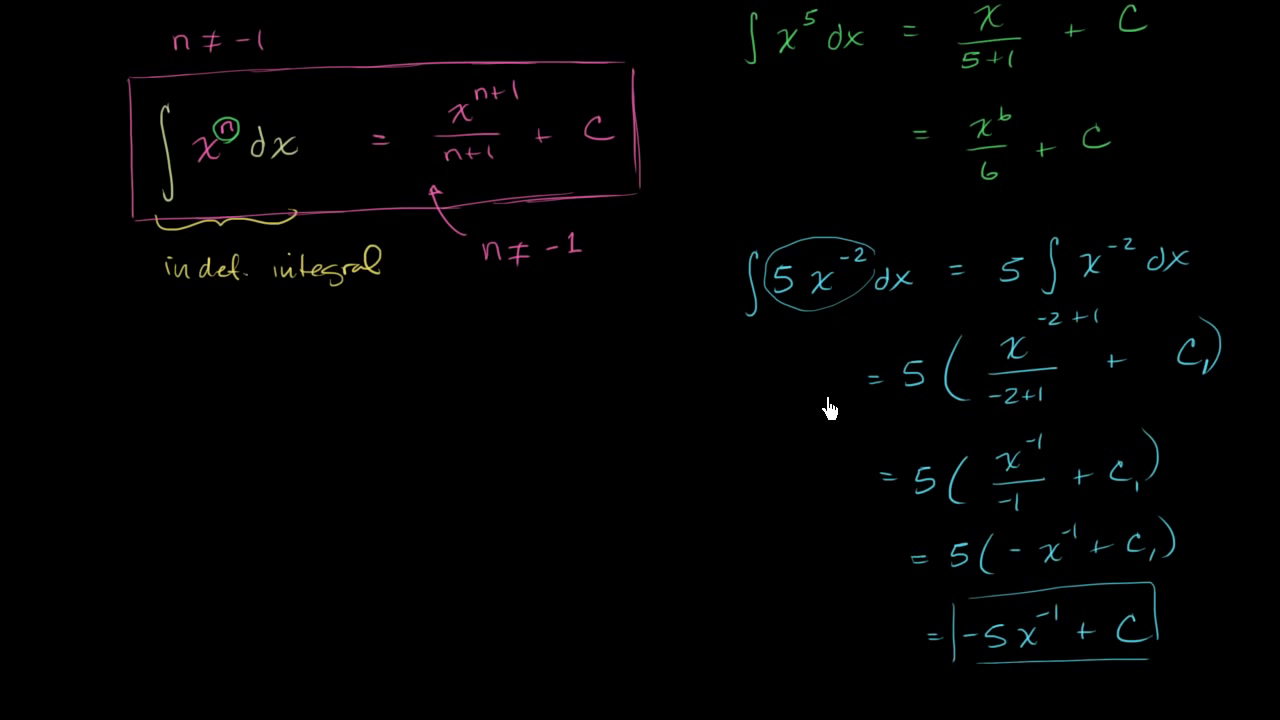 n ≠ -1
∫ xⁿ dx = xⁿ⁺¹/n+1 + C
n ≠ -1
indef. integral
∫ x⁵ dx = x/5+1 + C
= x⁶/6 + C
∫ 5 x⁻² dx = 5 ∫ x⁻² dx
= 5 ( x⁻²⁺¹/-2+1 + C₁)
= 5 ( x⁻¹/-1 + C₁)
= 5 ( - x⁻¹ + C₁)
= -5x⁻¹ + C